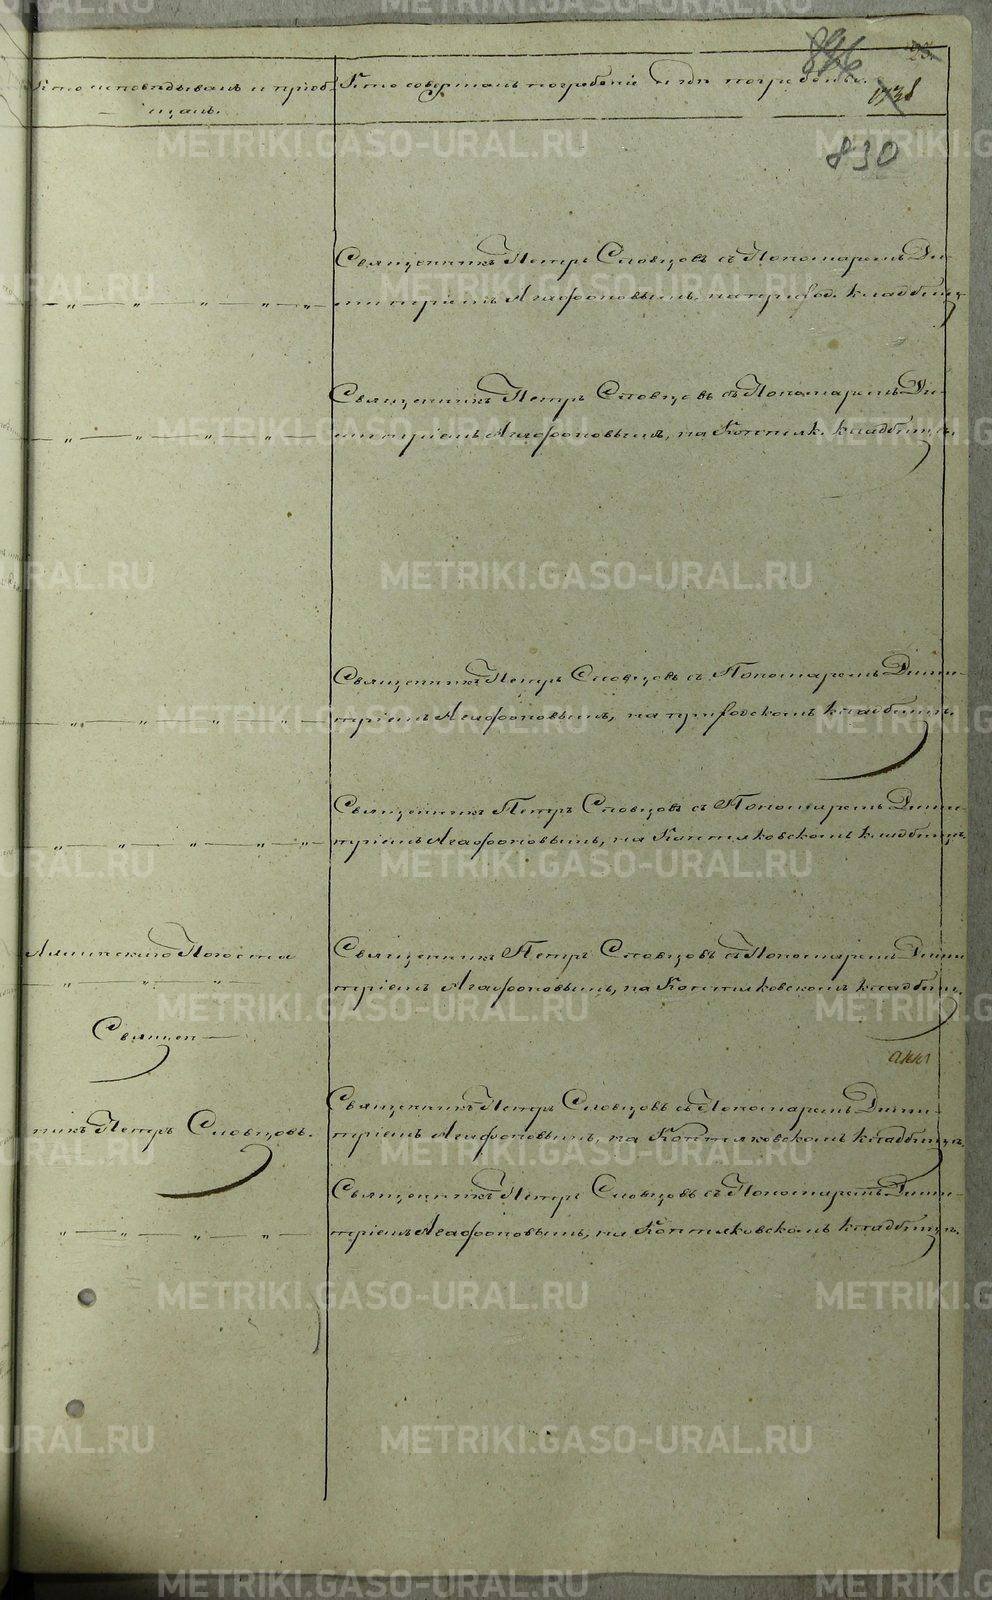 896
23
1738
830
Кто исповѣдывалъ и приоб-
щалъ.
Кто совершалъ погребеніе и гдѣ погребены.
Священникъ Петръ Словцовъ съ Пономаремъ Ди-
митріемъ Агафоновымъ, на приход. кладбищѣ
Священникъ Петръ Словцовъ съ Пономаремъ Ди-
митріемъ Агафоновымъ, на Коптяк. кладбищѣ.
Священникъ Петръ Словцовъ съ Пономаремъ Дими-
тріемъ Агафоновымъ, на кладбищѣ.
Священникъ Петръ Словцовъ съ Пономаремъ Дими-
тріемъ Агафоновымъ, на Коптяковскомъ кладбищѣ.
Погоста
Священ-
никъ Петръ Словцовъ.
Священникъ Петръ Словцовъ съ Пономаремъ Дими-
тріемъ Агафоновымъ, на Коптяковскомъ кладбищ.
Священникъ Петръ Словцовъ съ Пономаремъ Дими-
тріемъ Агафоновымъ, на Коптяковскомъ кладбищѣ.
Священникъ Петръ Словцовъ съ Пономаремъ Дими-
тріемъ Агафоновымъ, на Коптяковскомъ кладбищѣ.
METRIKI.GASO-URAL.RU